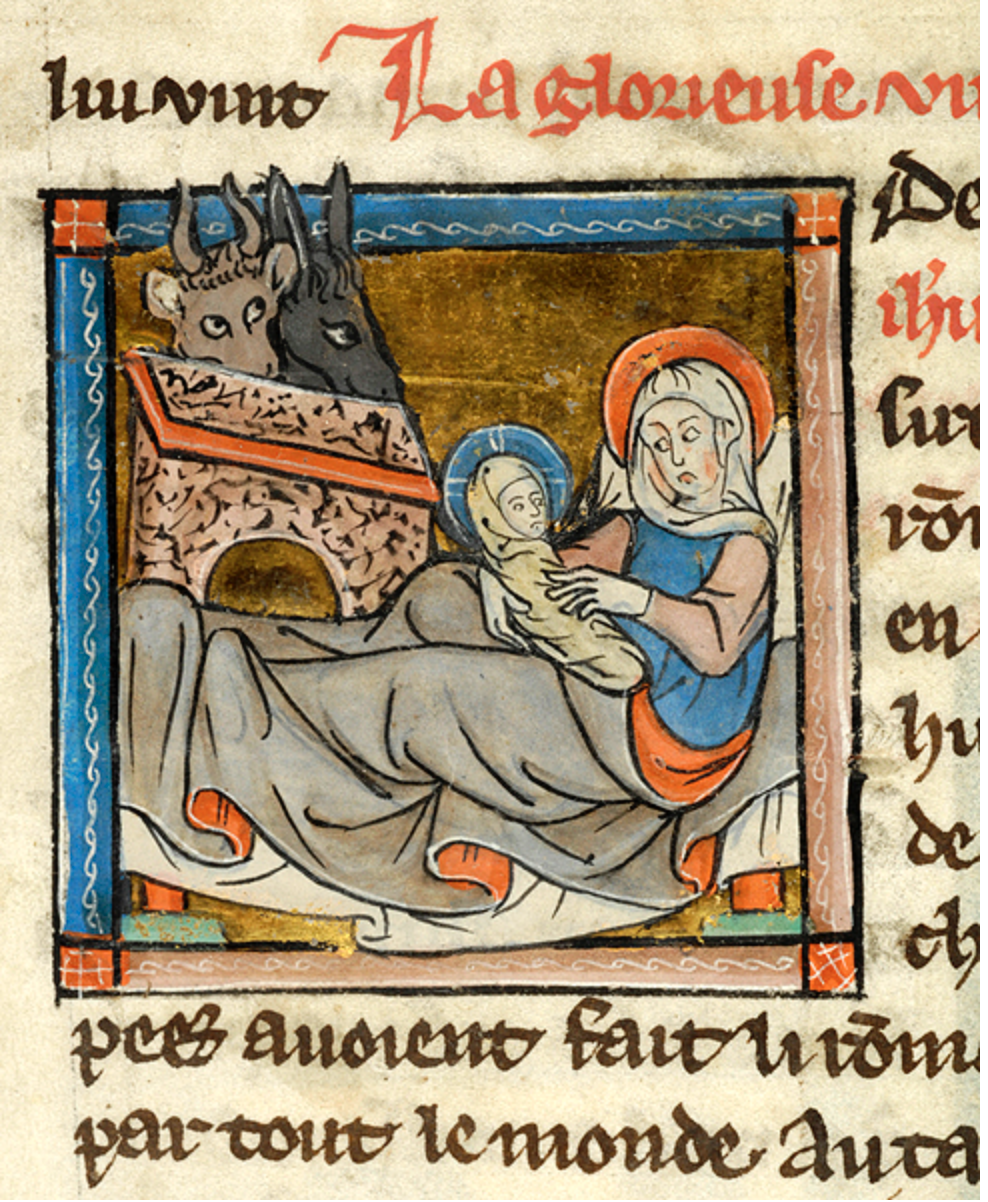 lui vint La glorieuse vi
De
ihu
sur
rōm
en
hu
de
ch
pees auoient fait li rōm
par tout le monde. Auta